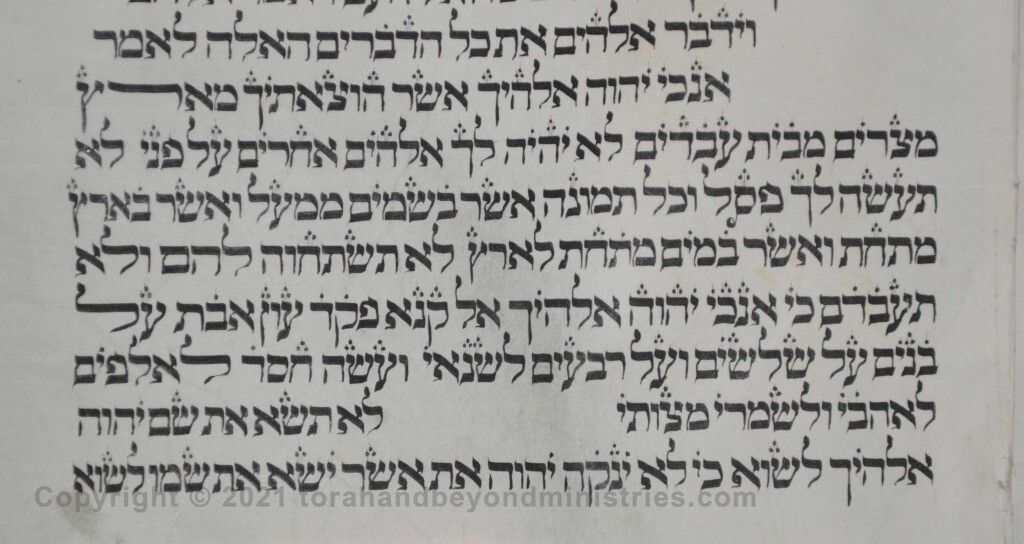 וידבר אלהים את כל הדברים האלה לאמר
אנכי יהוה אלהיך אשר הוצאתיך מארץ
מצרים מבית עבדים לא יהיה לך אלהים אחרים על פני לא
תעשה לך פסל וכל תמונה אשר בשמים ממעל ואשר בארץ
מתחת ואשר במים מתחת לארץ לא תשתחוה להם ולא
תעבדם כי אנכי יהוה אלהיך אל קנא פקד עון אבת על
בנים על שלשים ועל רבעים לשנאי ועשה חסד לאלפים
לאהבי ולשמרי מצותי לא תשא את שם יהוה
אלהיך לשוא כי לא ינקה יהוה את אשר ישא את שמו לשוא
Copyright © 2021 torahandbeyondministries.com